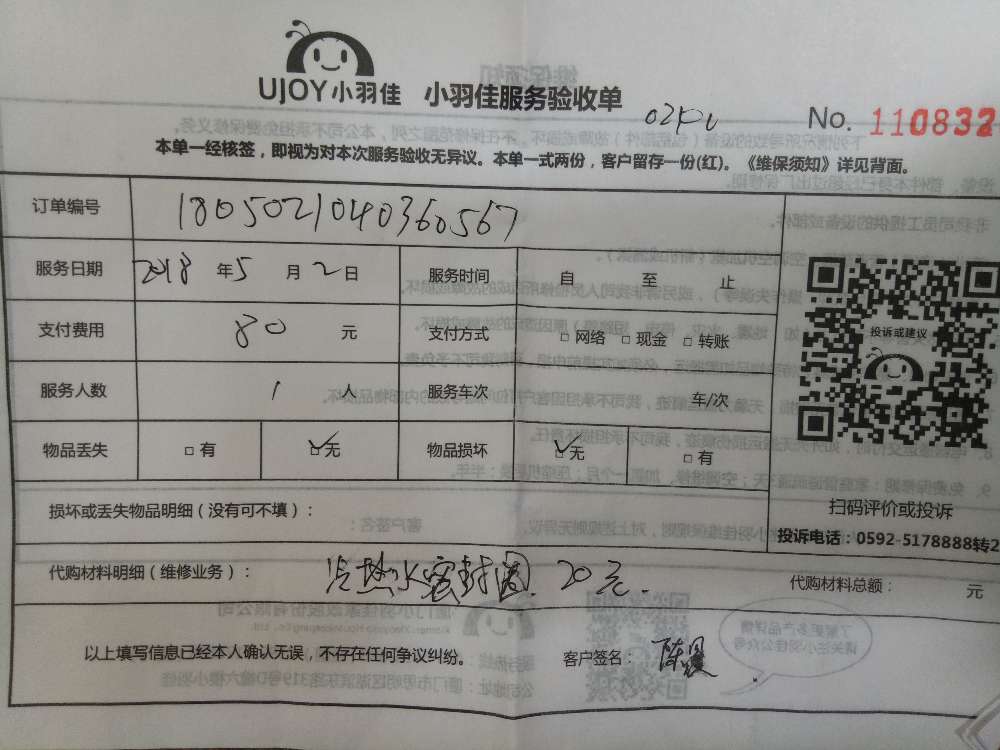 UJOY小羽佳 小羽佳服务验收单
No. 110832
本单一经核签，即视为对本次服务验收无异议。本单一式两份，客户留存一份(红)。《维保须知》详见背面。
订单编号 1805021040360567
服务日期 2018 年 5 月 2 日 服务时间 自 至 止
支付费用 80 元 支付方式 □ 网络 □ 现金 □ 转账
服务人数 1 人 服务车次 车/次
物品丢失 □ 有 ☑ 无 物品损坏 ☑ 无 □ 有
投诉或建议
扫码评价或投诉
投诉电话：0592-5178888转2
损坏或丢失物品明细（没有可不填）：
代购材料明细（维修业务）： 冷热水密封圈. 20元. 代购材料总额： 元
以上填写信息已经本人确认无误，不存在任何争议纠纷。 客户签名： 陈